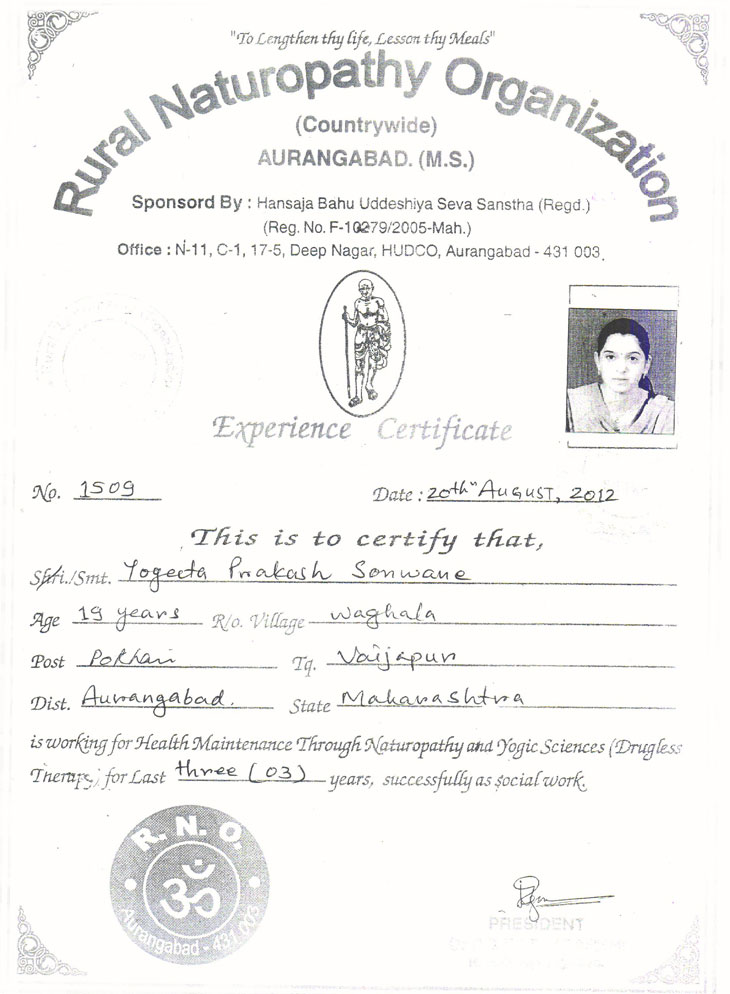 "To Lengthen thy life, Lesson thy Meals"
Rural Naturopathy Organization
(Countrywide)
AURANGABAD. (M.S.)
Sponsord By : Hansaja Bahu Uddeshiya Seva Sanstha (Regd.)
(Reg. No. F-10279/2005-Mah.)
Office : N-11, C-1, 17-5, Deep Nagar, HUDCO, Aurangabad - 431 003.
Experience Certificate
No. 1509 Date : 20th AUGUST, 2012
This is to certify that,
Shri./Smt. Yogeeta Prakash Sonwane
Age 19 years R/o. Village Waghala
Post Pokhari Tq. Vaijapur
Dist. Aurangabad. State Maharashtra
is working for Health Maintenance Through Naturopathy and Yogic Sciences (Drugless
Therapy) for Last three (03) years, successfully as social work.
R. N. O.
ॐ
Aurangabad - 431 003
PRESIDENT